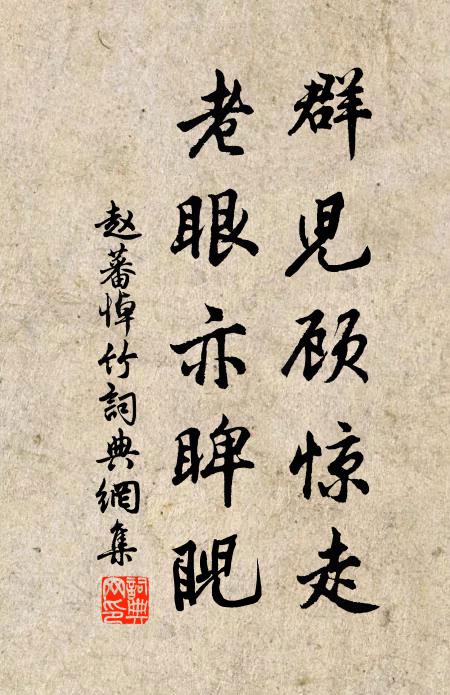 群児顾惊走
老眼亦睥睨
赵蕃悼竹詞典網集
詞典网印